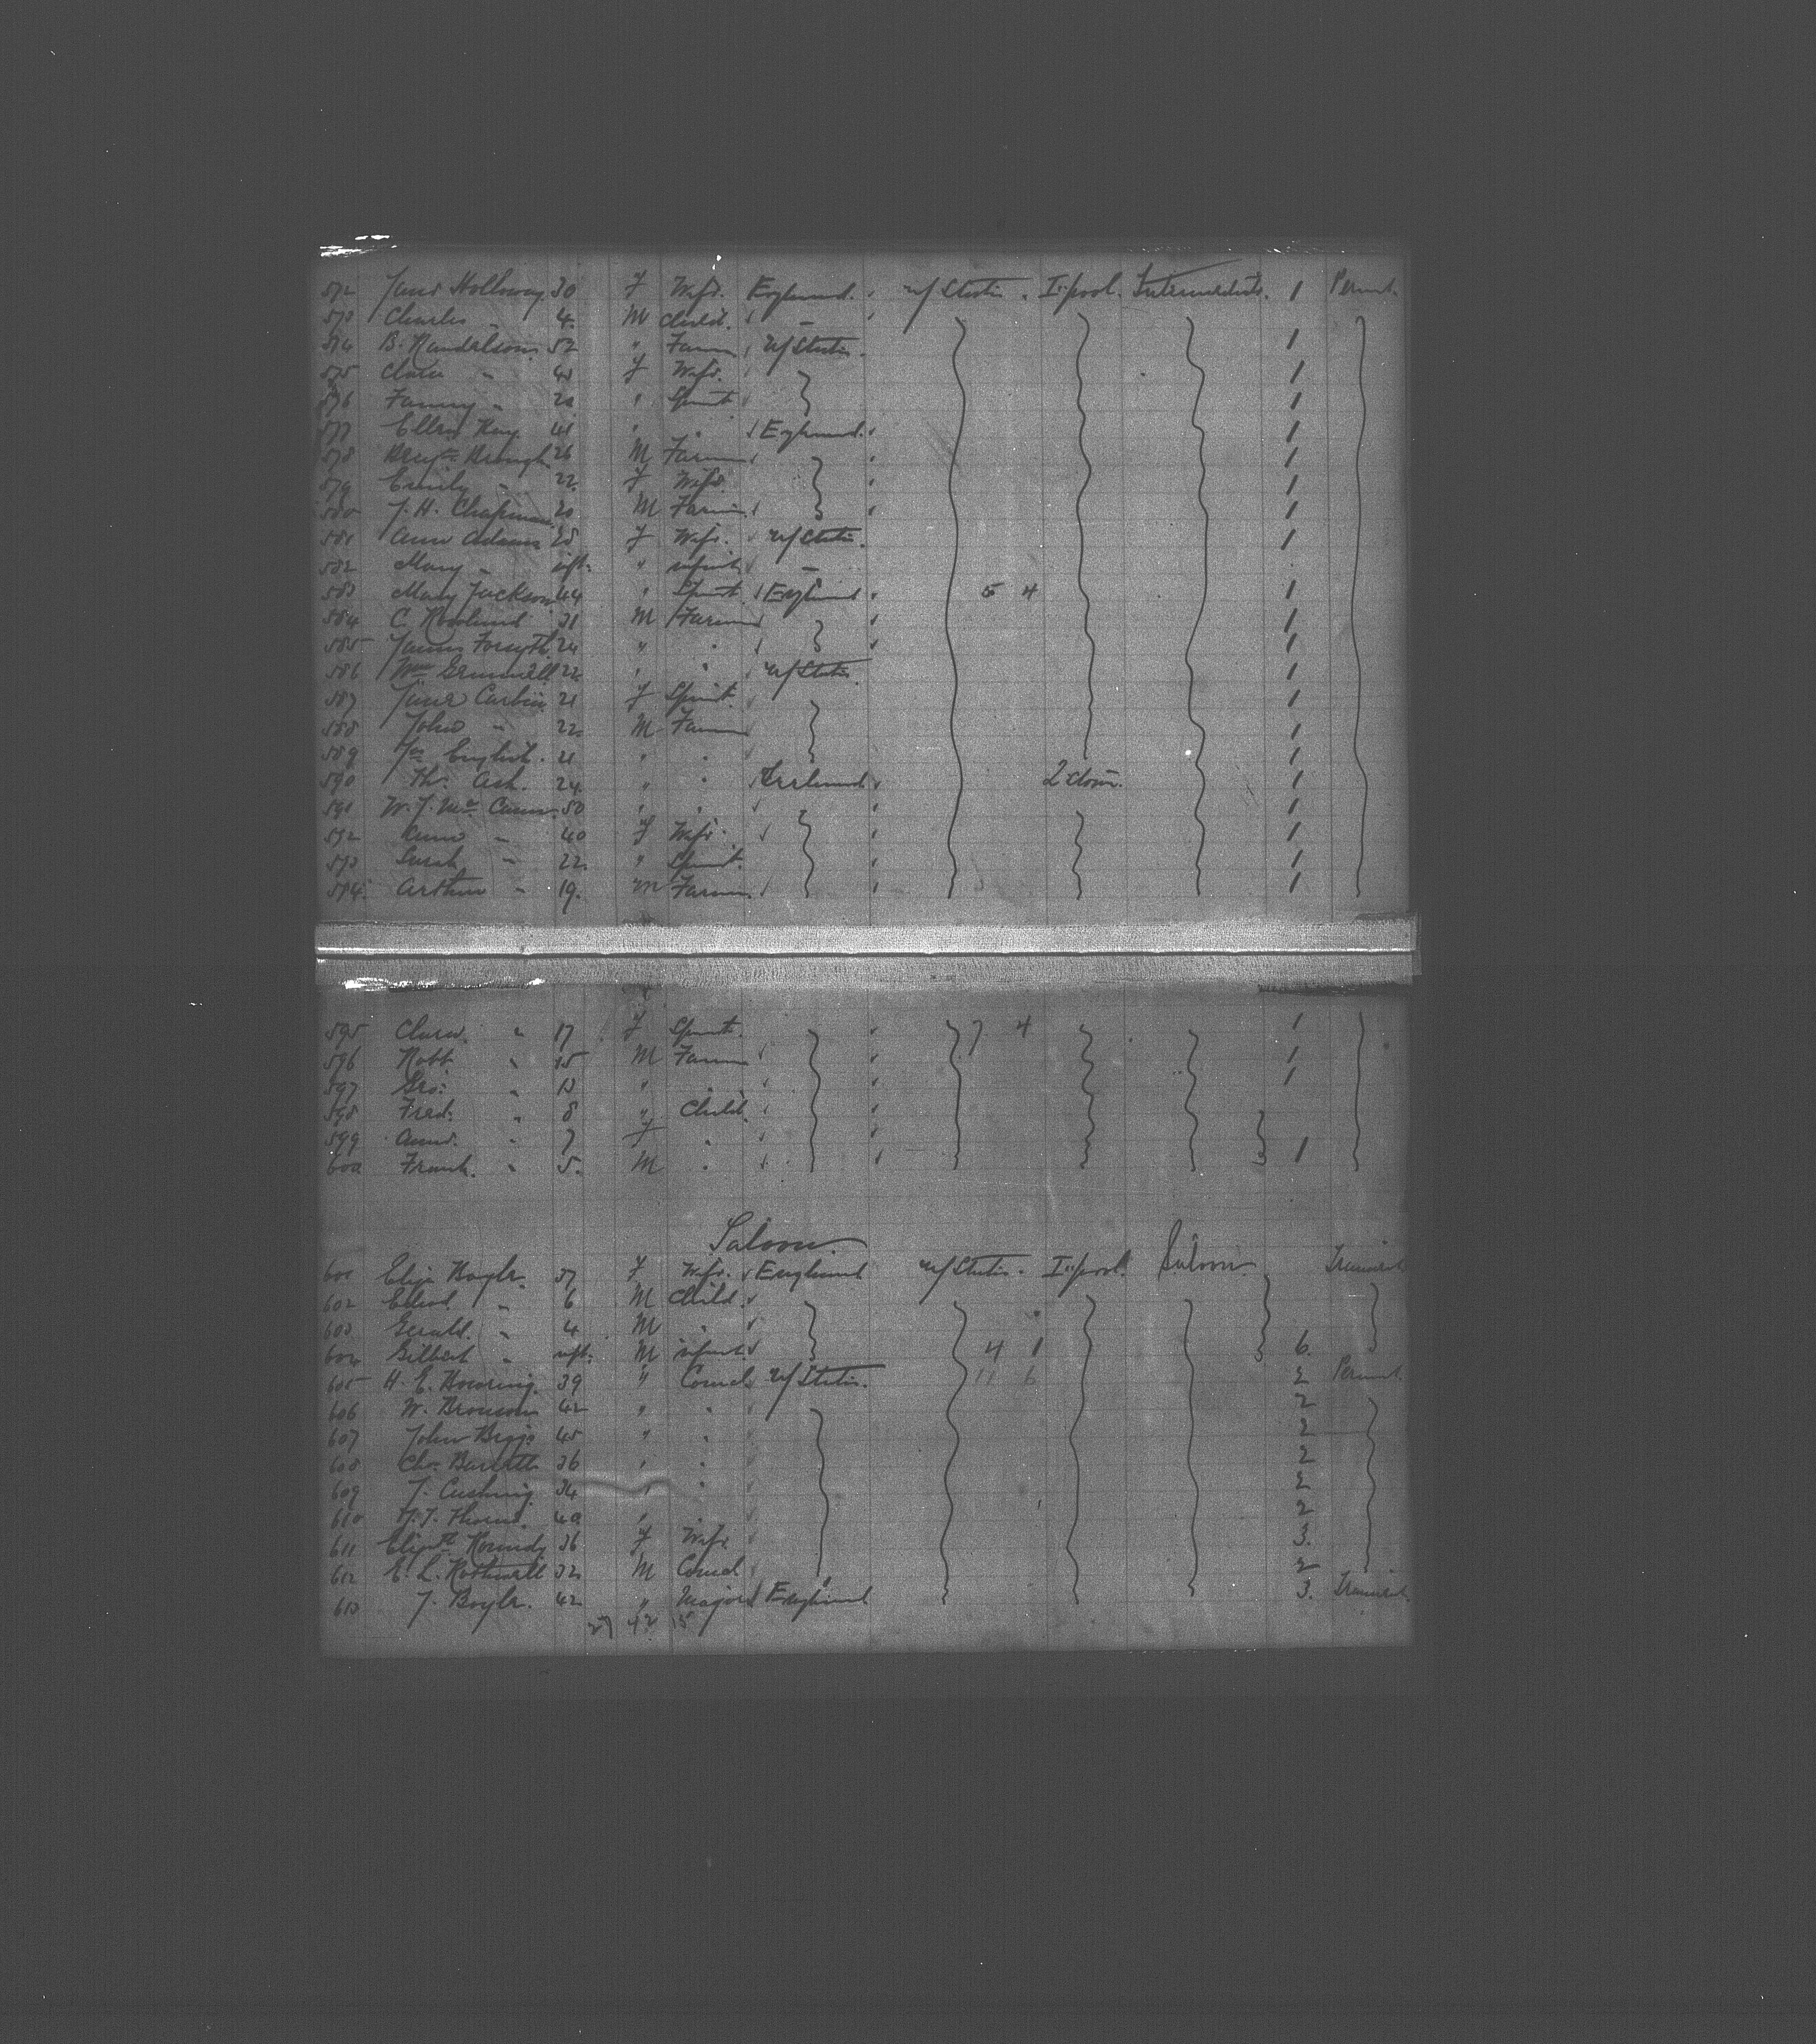 572 Jane Holloway 30 F Wife. England. U/States. L'pool. Intermediate. 1 Permt.
573 Charles " 4. M Child. –
574 B. Randelson 52 " Farm U/States. 1
575 Clara " 43 F Wife. 1
576 Fanny " 20 " Spinst 1
577 Ellen Kay 41 " " England. 1
578 Brough 26 M Farm 1
579 Emily " 22 F Wife. 1
580 J. H. Chapman 20 M Farm. 1
581 Ann Adams 28 F Wife. U/States. 1
582 Mary " inft. " infant –
583 Mary Jackson 44 " Spinst England 5 4 1
584 C. Rowland 31 M Farm 1
585 James Forsyth 24 " " 1
586 Wm 22 " " U/States. 1
587 Jane Corbin 21 F Spinst. 1
588 John " 22 M Farm 1
589 English. 21 " " 1
590 Th. Ash. 24 " " Ireland 1
591 W. J. 50 " " 1
592 Anne " 40 F Wife. 1
593 Sarah " 22 " Spinst. 1
594. Arthur " 19. M Farm. 1
595 Clara. " 17 F Spinst. 7 4 1
596 Robt. " 15 M Farm 1
597 Geo: " 13 " " 1
598 Fred. " 8 " Child.
599 Anne. " 7 F " 1
600 Frank. " 5. M "
Saloon.
601 Eliza Boyle. 37 F Wife. England U/States. L'pool. Saloon. Transit
602 " 6 M Child.
603 Gerald. " 4 M "
604 Gilbert " inft. M infant 4 1 6.
605 H. E. 39 " Comcl. U/States. 11 6 2 Permt.
606 W. Bronson 42 " " 2
607 John Biggs 45 " " 2
608 Chs. Barrett 36 " " 2
609 J. Cushing 34 " " 2
610 Thorne. 40 " " 2
611 Elizth 36 F Wife 3.
612 E. L. Rothwell 32 M Comcl 2
613 J. Boyle. 42 " Major England 3. Transit
27 42 15